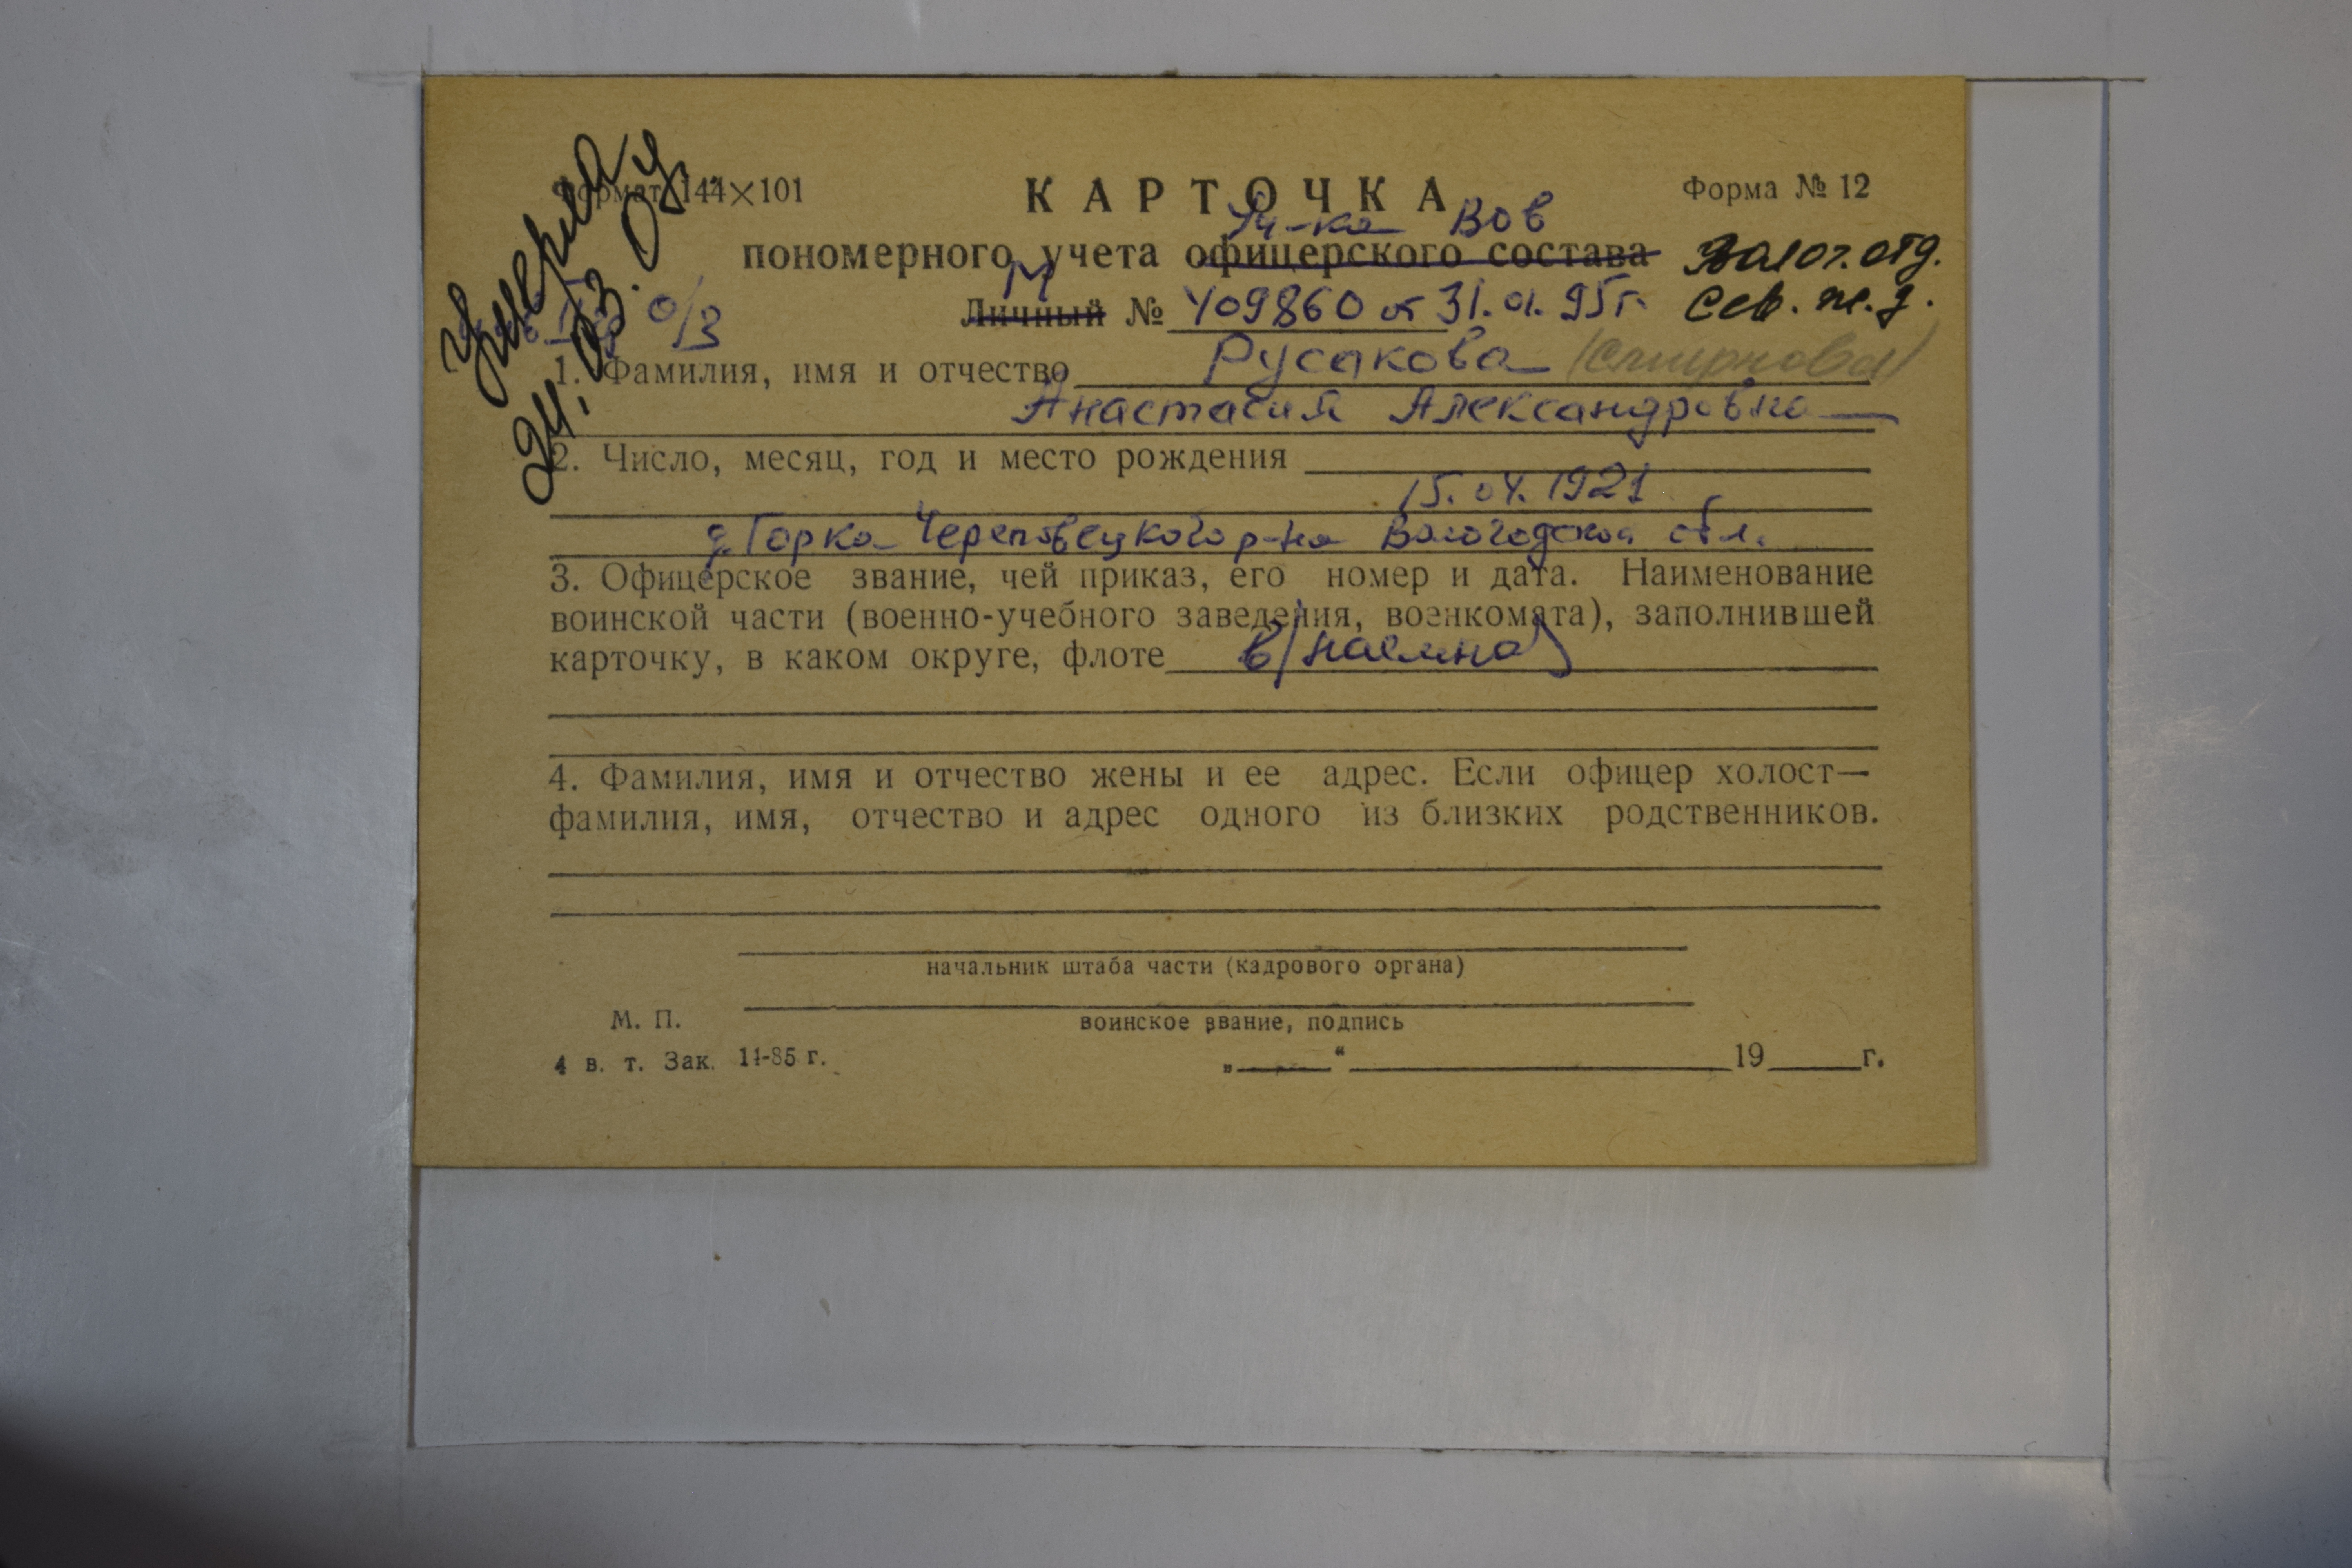 Умерла
24.03.04.
Формат 144×101
КАРТОЧКА
Форма № 12
Уч-ка ВОВ
пономерного учета офицерского состава
Волог. отд.
Сев. ж. д.
о/з
Личный № 409860 от 31.01.95г.
1. Фамилия, имя и отчество Русакова (Смирнова)
Анастасия Александровна
2. Число, месяц, год и место рождения
15.04.1921
д. Горка Череповецкого р-на Вологодской обл.
3. Офицерское звание, чей приказ, его номер и дата. Наименование
воинской части (военно-учебного заведения, военкомата), заполнившей
карточку, в каком округе, флоте в/наемная
4. Фамилия, имя и отчество жены и ее адрес. Если офицер холост—
фамилия, имя, отчество и адрес одного из близких родственников.
начальник штаба части (кадрового органа)
М. П.
воинское звание, подпись
4 в. т. Зак. 11-85 г.
„ “ 19 г.